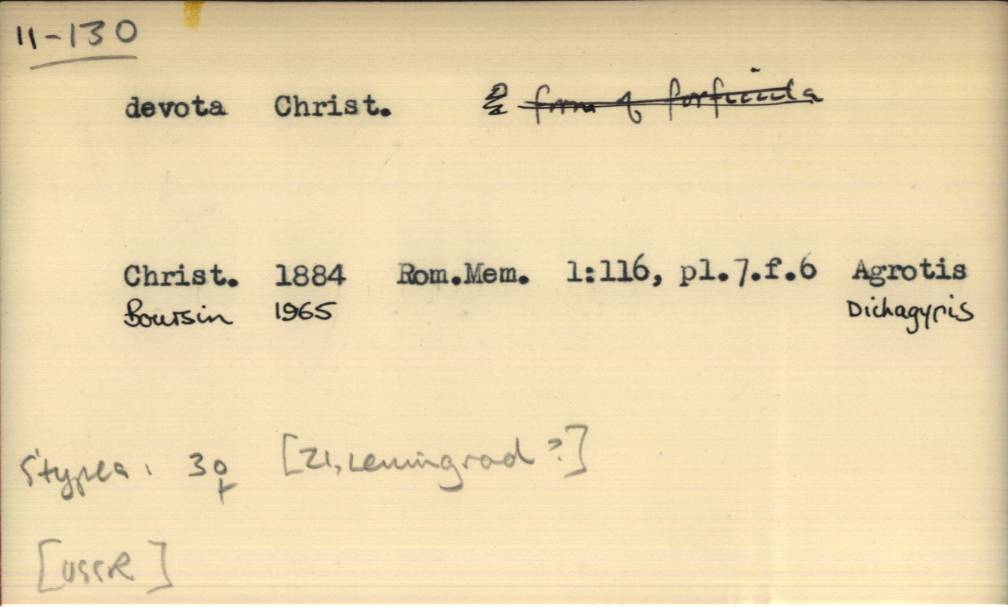 11-130
devota Christ. form of
Christ. 1884 Rom.Mem. 1:116, pl.7.f.6 Agrotis
Boursin 1965 Dichagyris
Stypes: 3♀ [ZI, Leningrad ?]
[USSR]